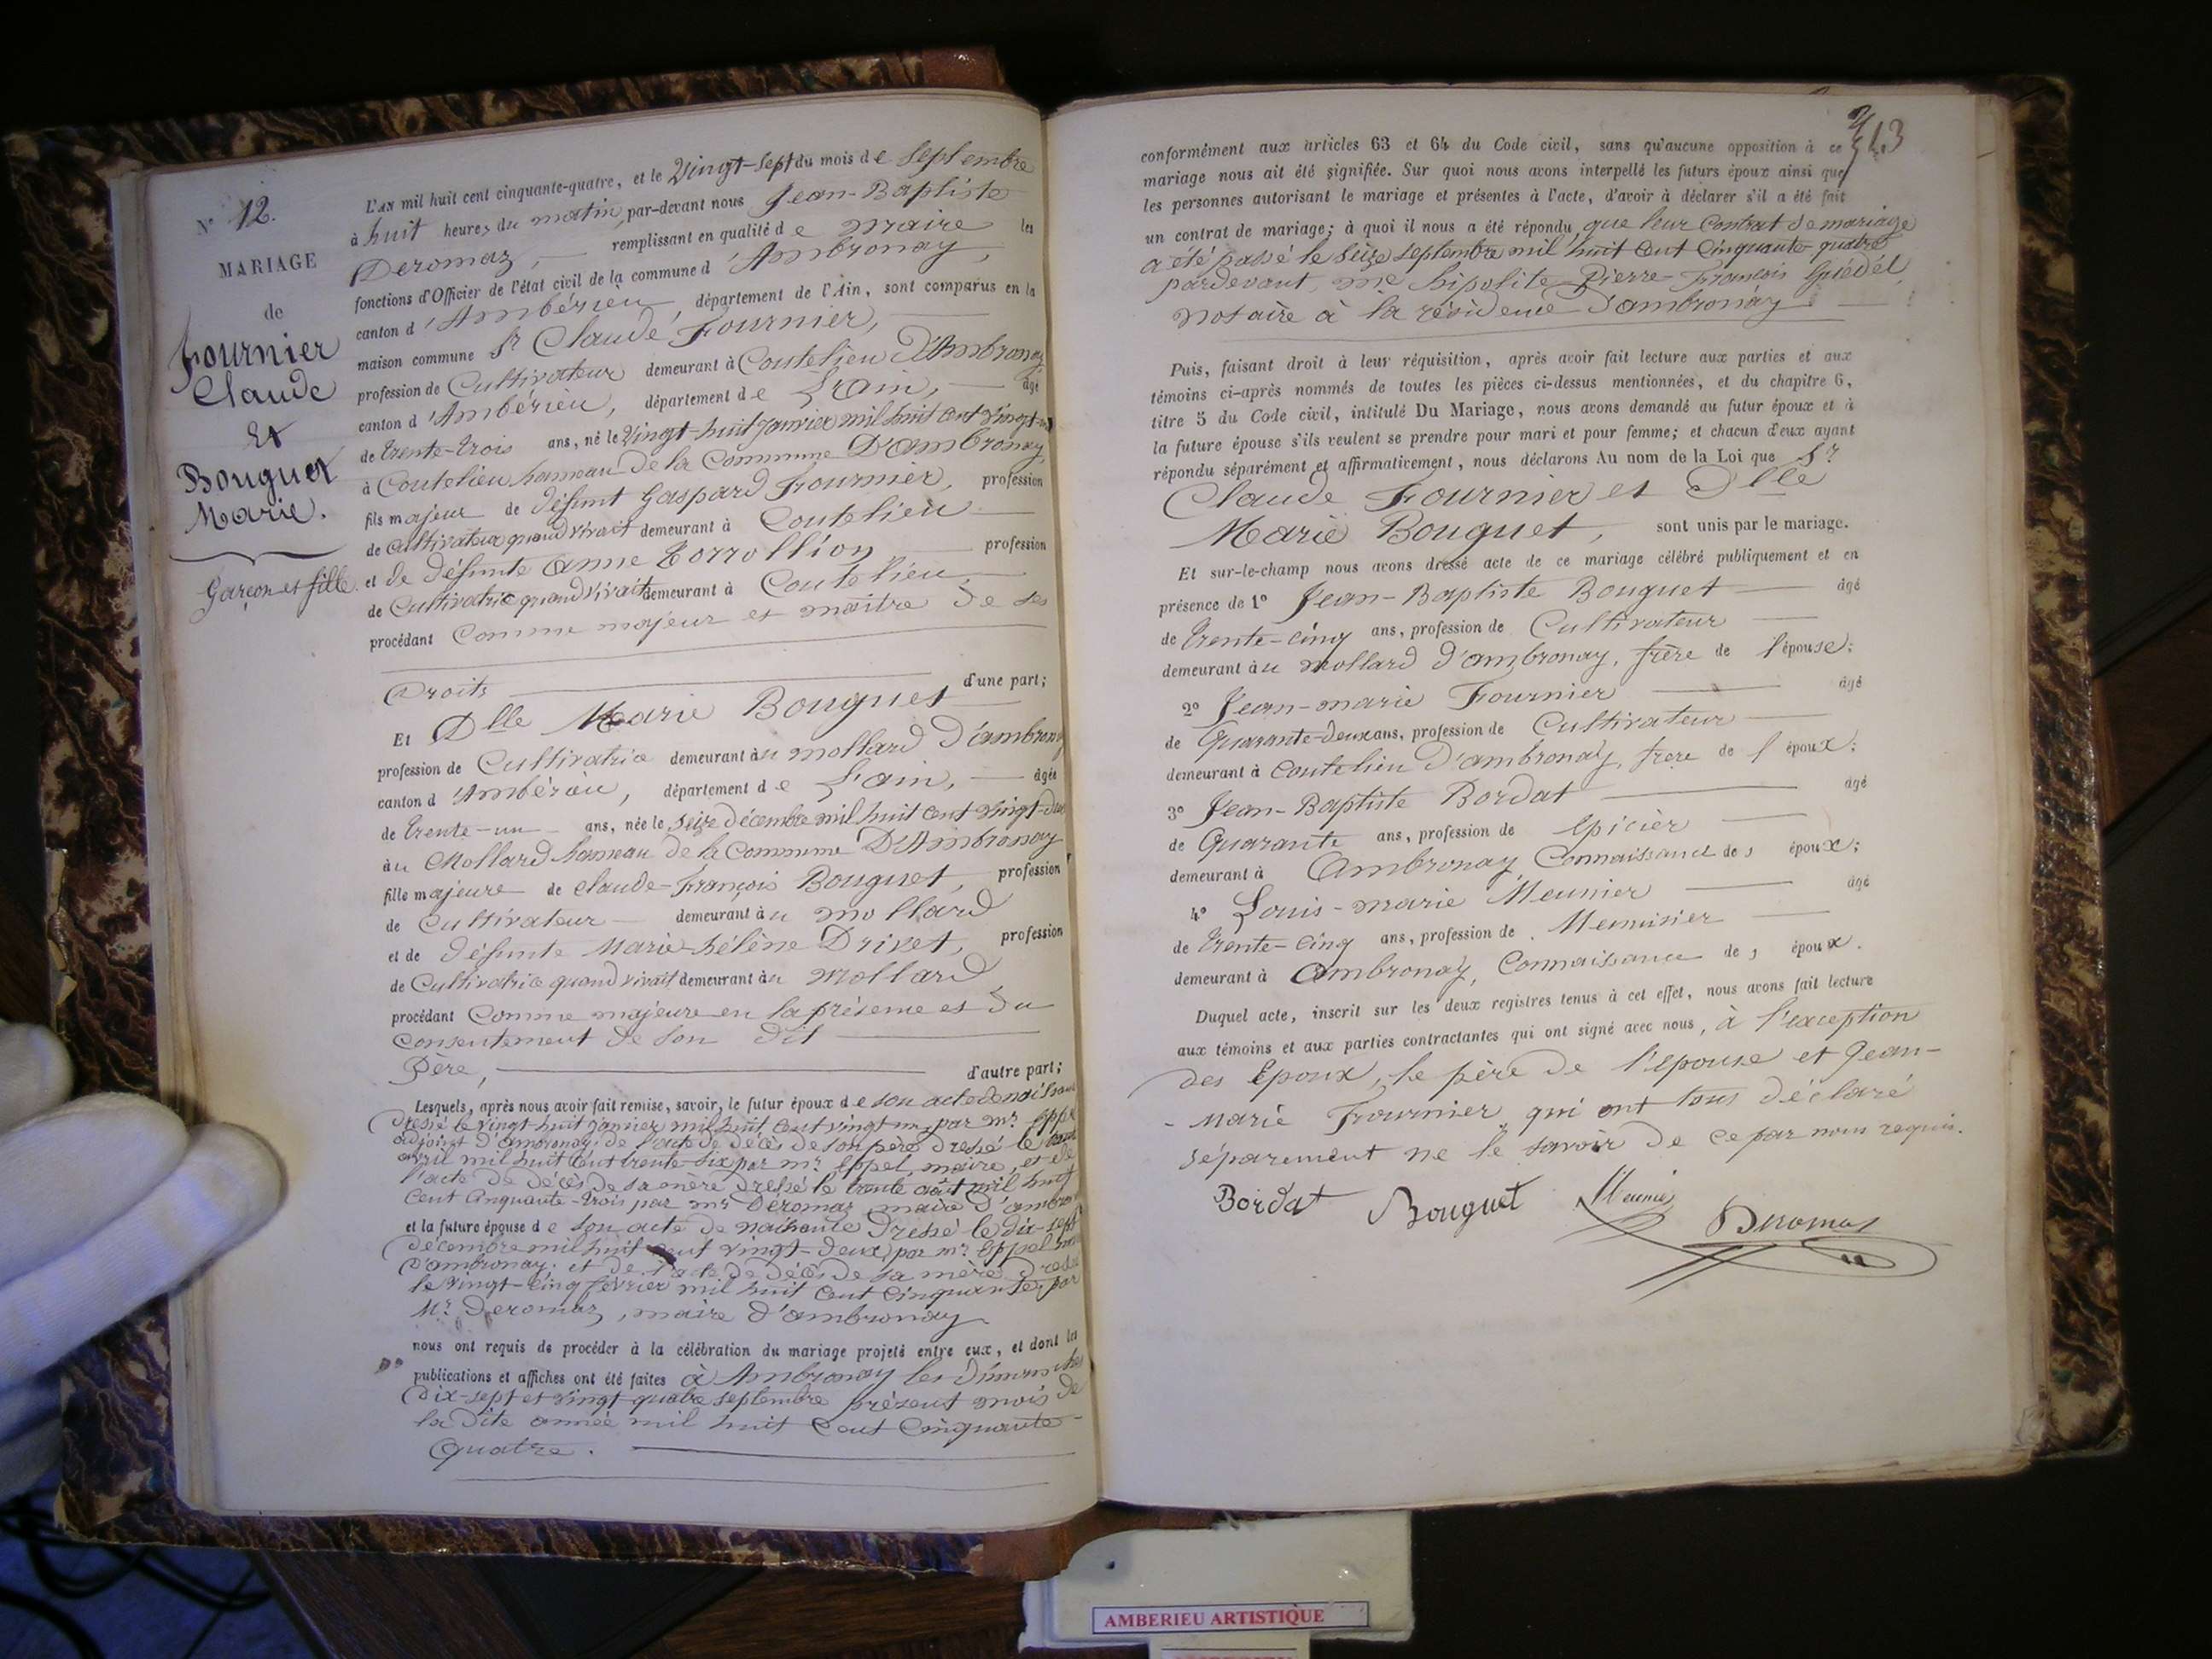 N° 12.
MARIAGE
de
Fournier
Claude
Et
Bouguet
Marie.
Garçon et fille.
L'AN mil huit cent cinquante-quatre, et le Vingt-Sept du mois de Septembre
à huit heures du matin, par-devant nous Jean-Baptiste
Deromaz, remplissant en qualité de maire les
fonctions d'Officier de l'état civil de la commune d'Ambronay,
canton d'Ambérieu, département de l'Ain, sont comparus en la
maison commune Sr Claude Fournier,
profession de Cultivateur demeurant à Coutelieu D'Ambronay,
canton d'Ambérieu, département de L'ain, âgé
de trente-trois ans, né le Vingt-huit Janvier mil huit cent vingt-un
à Coutelieu hameau de la Commune D'ambronay,
fils majeur de défunt Gaspard Fournier, profession
de Cultivateur quand vivait demeurant à Coutelieu
et de défunte Anne profession
de Cultivatrice quand vivait demeurant à Coutelieu,
procédant Comme majeur et maître de ses
Droits d'une part;
Et Dlle Marie Bouguet
profession de Cultivatrice demeurant au mollard d'ambronay
canton d'Ambérieu, département de L'ain, âgée
de trente-un ans, née le Seize décembre mil huit cent vingt-deux
au Mollard hameau de la Commune D'Ambronay
fille majeure de Claude-François Bouguet, profession
de Cultivateur demeurant au mollard
et de défunte Marie-hélène Drivet, profession
de Cultivatrice quand vivait demeurant au mollard
procédant Comme majeure en la présence et du
Consentement de son dit
Père, d'autre part;
Lesquels, après nous avoir fait remise, savoir, le futur époux de son acte de naissance
dressé le vingt huit janvier mil huit cent vingt un, par mr Eppel
adjoint d'ambronay; de l'acte de décès de son père dressé le
avril mil huit cent trente-six par mr Eppel, maire, et de
l'acte de décès de sa mère dressé le trente août mil huit
cent cinquante-trois par mr Deromaz maire d'ambronay
et la future épouse de son acte de naissance dressé le dix-sept
décembre mil huit cent vingt-deux, par mr Eppel maire
d'ambronay; et de l'acte de décès de sa mère dressé
le vingt-cinq février mil huit cent cinquante, par
Mr Deromaz, maire d'ambronay
nous ont requis de procéder à la célébration du mariage projeté entre eux, et dont les
publications et affiches ont été faites à Ambronay les dimanches
dix-sept et vingt quatre septembre présent mois de
la dite année mil huit Cent Cinquante-
Quatre.
conformément aux articles 63 et 64 du Code civil, sans qu'aucune opposition à ce
mariage nous ait été signifiée. Sur quoi nous avons interpellé les futurs époux ainsi que
les personnes autorisant le mariage et présentes à l'acte, d'avoir à déclarer s'il a été fait
un contrat de mariage; à quoi il nous a été répondu que leur Contrat de mariage
a été passé le Seize Septembre mil huit cent cinquante-quatre
pardevant me hipolite-Pierre-François
notaire à la résidence d'ambronay
Puis, faisant droit à leur réquisition, après avoir fait lecture aux parties et aux
témoins ci-après nommés de toutes les pièces ci-dessus mentionnées, et du chapitre 6,
titre 5 du Code civil, intitulé Du Mariage, nous avons demandé au futur époux et à
la future épouse s'ils veulent se prendre pour mari et pour femme; et chacun d'eux ayant
répondu séparément et affirmativement, nous déclarons Au nom de la Loi que Sr
Claude Fournier et Dlle
Marie Bouguet, sont unis par le mariage.
Et sur-le-champ nous avons dressé acte de ce mariage célébré publiquement et en
présence de 1° Jean-Baptiste Bouguet âgé
de trente-cinq ans, profession de Cultivateur
demeurant au mollard d'ambronay, frère de l'épouse;
2° Jean-marie Fournier âgé
de Quarante-deux ans, profession de Cultivateur
demeurant à Coutelieu d'ambronay, frère de l'époux;
3° Jean-Baptiste Bordat âgé
de Quarante ans, profession de Epicier
demeurant à Ambronay, Connaissance des époux;
4° Louis-marie Meunier âgé
de trente-cinq ans, profession de Menuisier
demeurant à Ambronay, Connaissance des époux.
Duquel acte, inscrit sur les deux registres tenus à cet effet, nous avons fait lecture
aux témoins et aux parties contractantes qui ont signé avec nous, à l'exception
des Epoux, le père de l'épouse et Jean-
-Marie Fournier, qui ont tous déclaré
séparement ne le savoir de ce par nous requis.
Bordat Bouguet Meunier Deromaz
AMBERIEU ARTISTIQUE